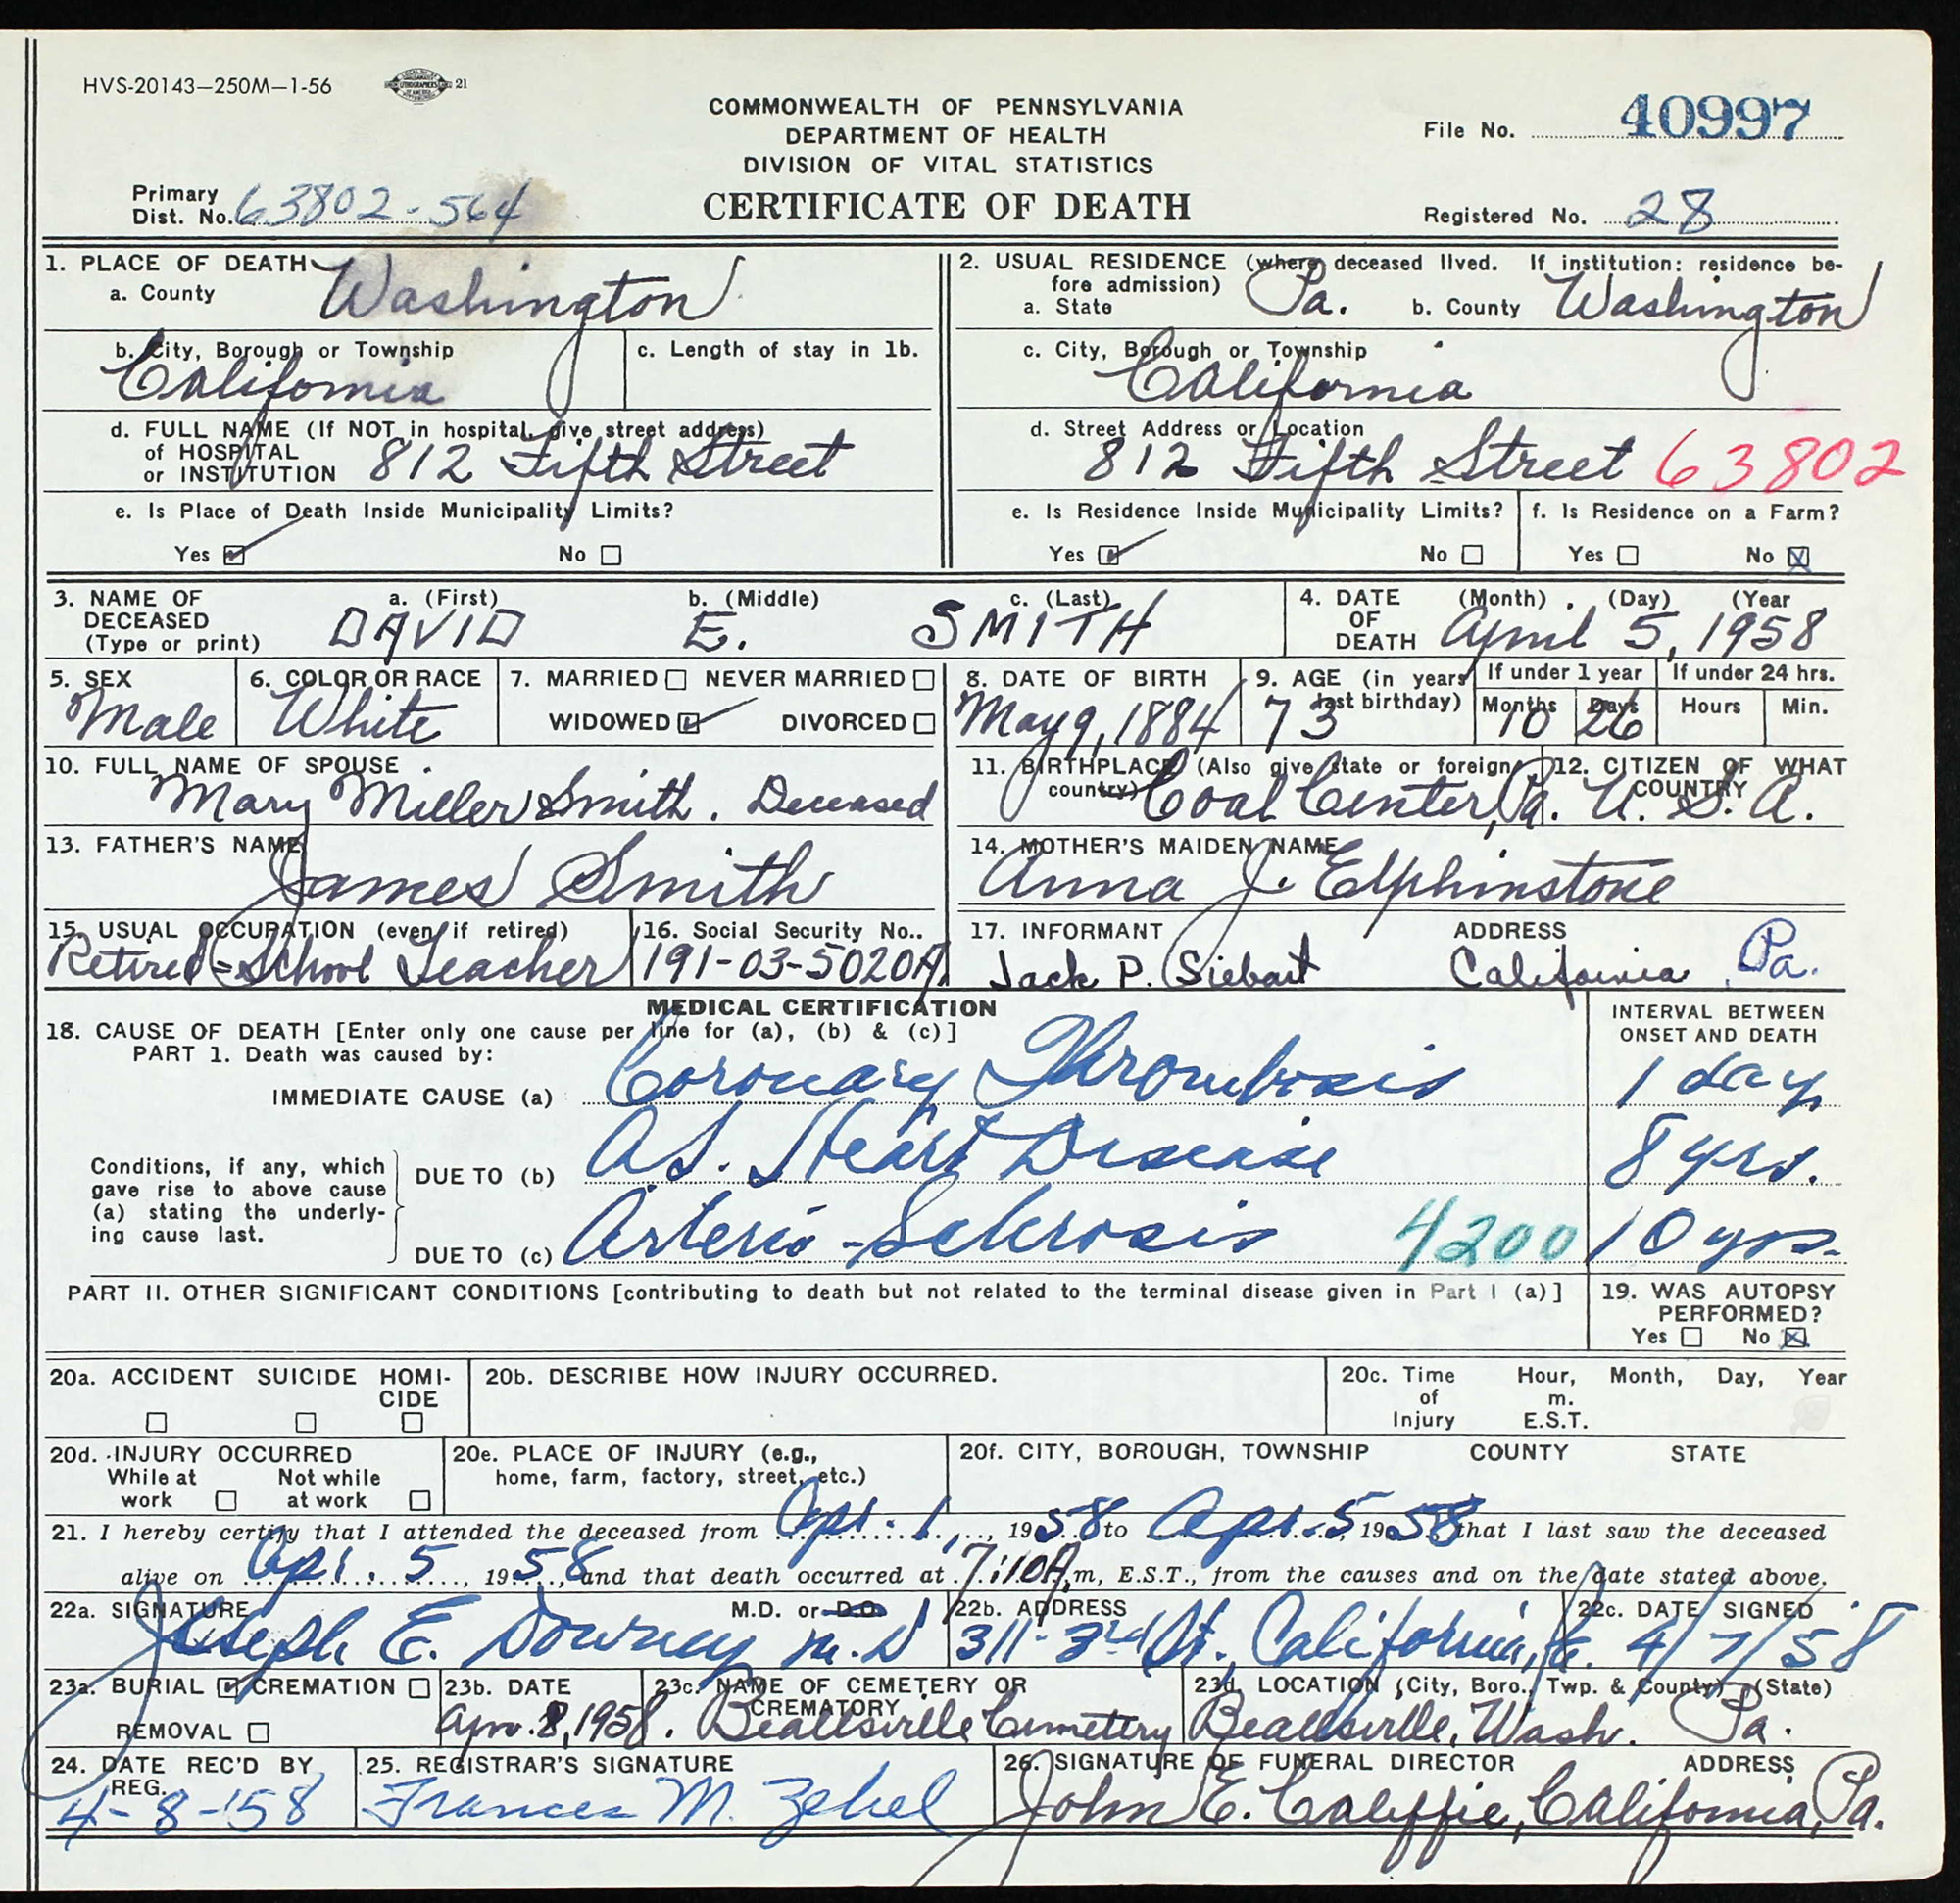 HVS-20143—250M—1-56 21
COMMONWEALTH OF PENNSYLVANIA
DEPARTMENT OF HEALTH
DIVISION OF VITAL STATISTICS
CERTIFICATE OF DEATH
File No. 40997
Primary
Dist. No. 63802-564
Registered No. 28
1. PLACE OF DEATH
a. County Washington
b. City, Borough or Township
California
c. Length of stay in 1b.
d. FULL NAME (If NOT in hospital, give street address)
of HOSPITAL
or INSTITUTION 812 Fifth Street
e. Is Place of Death Inside Municipality Limits?
Yes No
2. USUAL RESIDENCE (where deceased lived. If institution: residence be-
fore admission)
a. State Pa. b. County Washington
c. City, Borough or Township
California
d. Street Address or Location
812 Fifth Street 63802
e. Is Residence Inside Municipality Limits?
Yes No
f. Is Residence on a Farm?
Yes No
3. NAME OF
DECEASED
(Type or print)
a. (First) b. (Middle) c. (Last)
DAVID E. SMITH
4. DATE
OF
DEATH
(Month) (Day) (Year
April 5, 1958
5. SEX
Male
6. COLOR OR RACE
White
7. MARRIED NEVER MARRIED
WIDOWED DIVORCED
8. DATE OF BIRTH
May 9, 1884
9. AGE (in years
last birthday)
73
If under 1 year
Months Days
10 26
If under 24 hrs.
Hours Min.
10. FULL NAME OF SPOUSE
Mary Miller Smith. Deceased
11. BIRTHPLACE (Also give state or foreign
country)
Coal Center, Pa.
12. CITIZEN OF WHAT
COUNTRY
U. S. A.
13. FATHER'S NAME
James Smith
14. MOTHER'S MAIDEN NAME
Anna J. Elphinstone
15. USUAL OCCUPATION (even if retired)
Retired-School Teacher
16. Social Security No..
191-03-5020A
17. INFORMANT ADDRESS
Jack P. Siebart California Pa.
MEDICAL CERTIFICATION
18. CAUSE OF DEATH [Enter only one cause per line for (a), (b) & (c)]
PART 1. Death was caused by:
INTERVAL BETWEEN
ONSET AND DEATH
IMMEDIATE CAUSE (a) Coronary Thrombosis 1 day
Conditions, if any, which
gave rise to above cause
(a) stating the underly-
ing cause last.
DUE TO (b) A.S. Heart Disease 8 yrs.
DUE TO (c) Arterio-Sclerosis 4200 10 yrs.
PART II. OTHER SIGNIFICANT CONDITIONS [contributing to death but not related to the terminal disease given in Part I (a)]
19. WAS AUTOPSY
PERFORMED?
Yes No
20a. ACCIDENT SUICIDE HOMI-
CIDE
20b. DESCRIBE HOW INJURY OCCURRED.
20c. Time Hour, Month, Day, Year
of m.
Injury E.S.T.
20d. INJURY OCCURRED
While at Not while
work at work
20e. PLACE OF INJURY (e.g.,
home, farm, factory, street, etc.)
20f. CITY, BOROUGH, TOWNSHIP COUNTY STATE
21. I hereby certify that I attended the deceased from Apr. 1, 1958 to Apr. 5 1958 that I last saw the deceased
alive on Apr. 5, 1958, and that death occurred at 7:10 A.m, E.S.T., from the causes and on the date stated above.
22a. SIGNATURE M.D. or D.O.
Joseph E. Downey M.D
22b. ADDRESS
311-3rd St. California, Pa.
22c. DATE SIGNED
4/7/58
23a. BURIAL CREMATION
REMOVAL
23b. DATE
Apr. 8, 1958.
23c. NAME OF CEMETERY OR
CREMATORY
Beallsville Cemetery
23d. LOCATION (City, Boro., Twp. & County) (State)
Beallsville, Wash. Pa.
24. DATE REC'D BY
REG.
4-8-'58
25. REGISTRAR'S SIGNATURE
Frances M. Zebel
26. SIGNATURE OF FUNERAL DIRECTOR ADDRESS
John E. Caleffie, California, Pa.